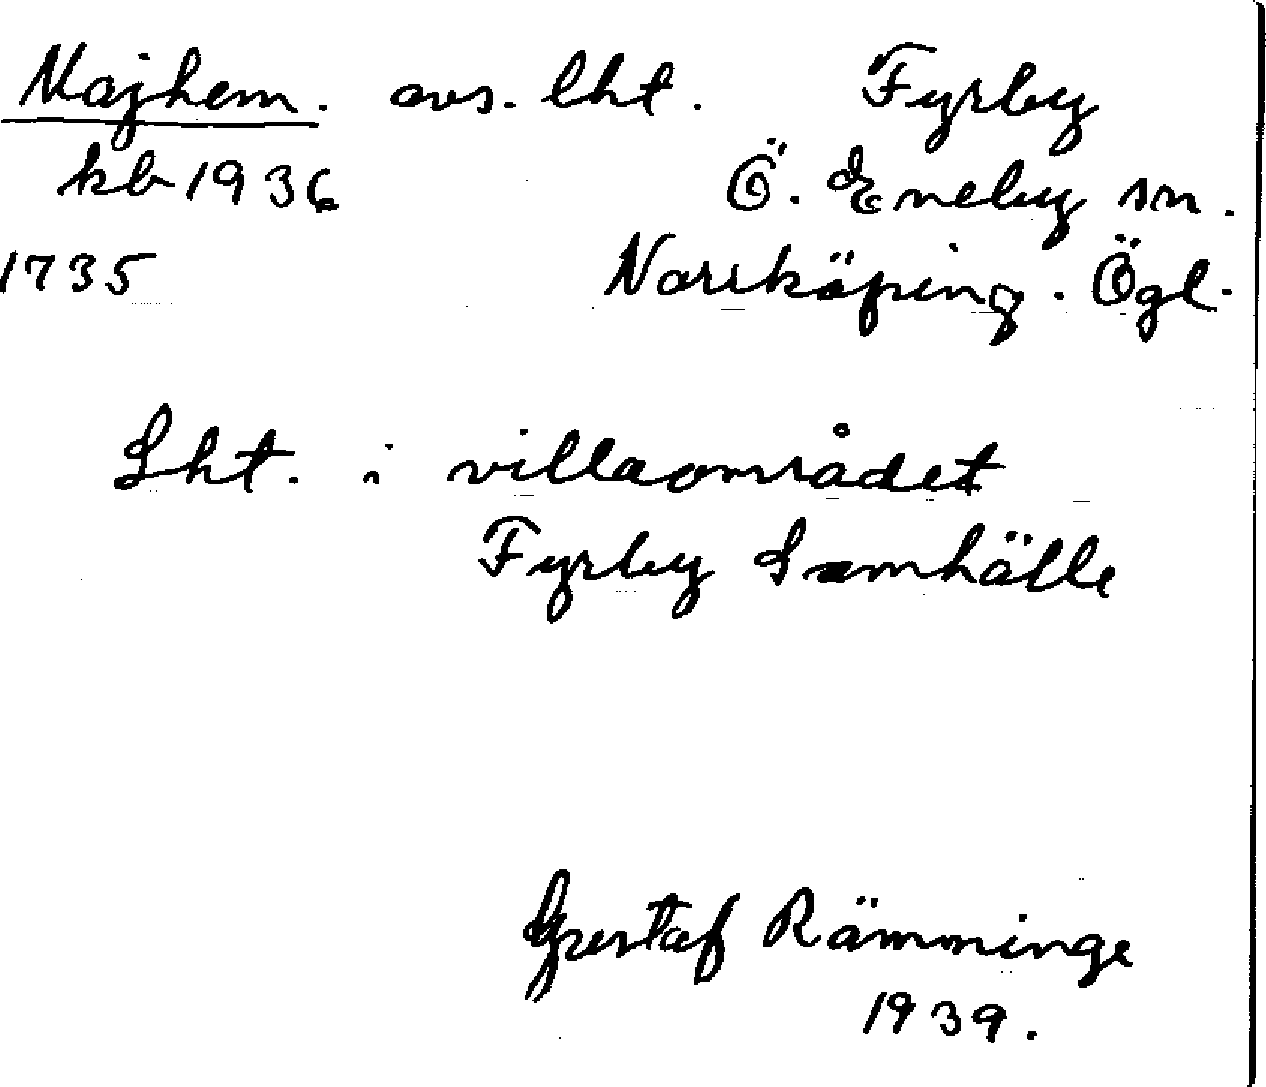 Majhem. avs. lht. Fyrby
kb 1936 Ö. Eneby sn.
1735 Norrköping. Ögl.
Lht. i villaområdet
Fyrby Samhälle
Gustaf Rämminge
1939.